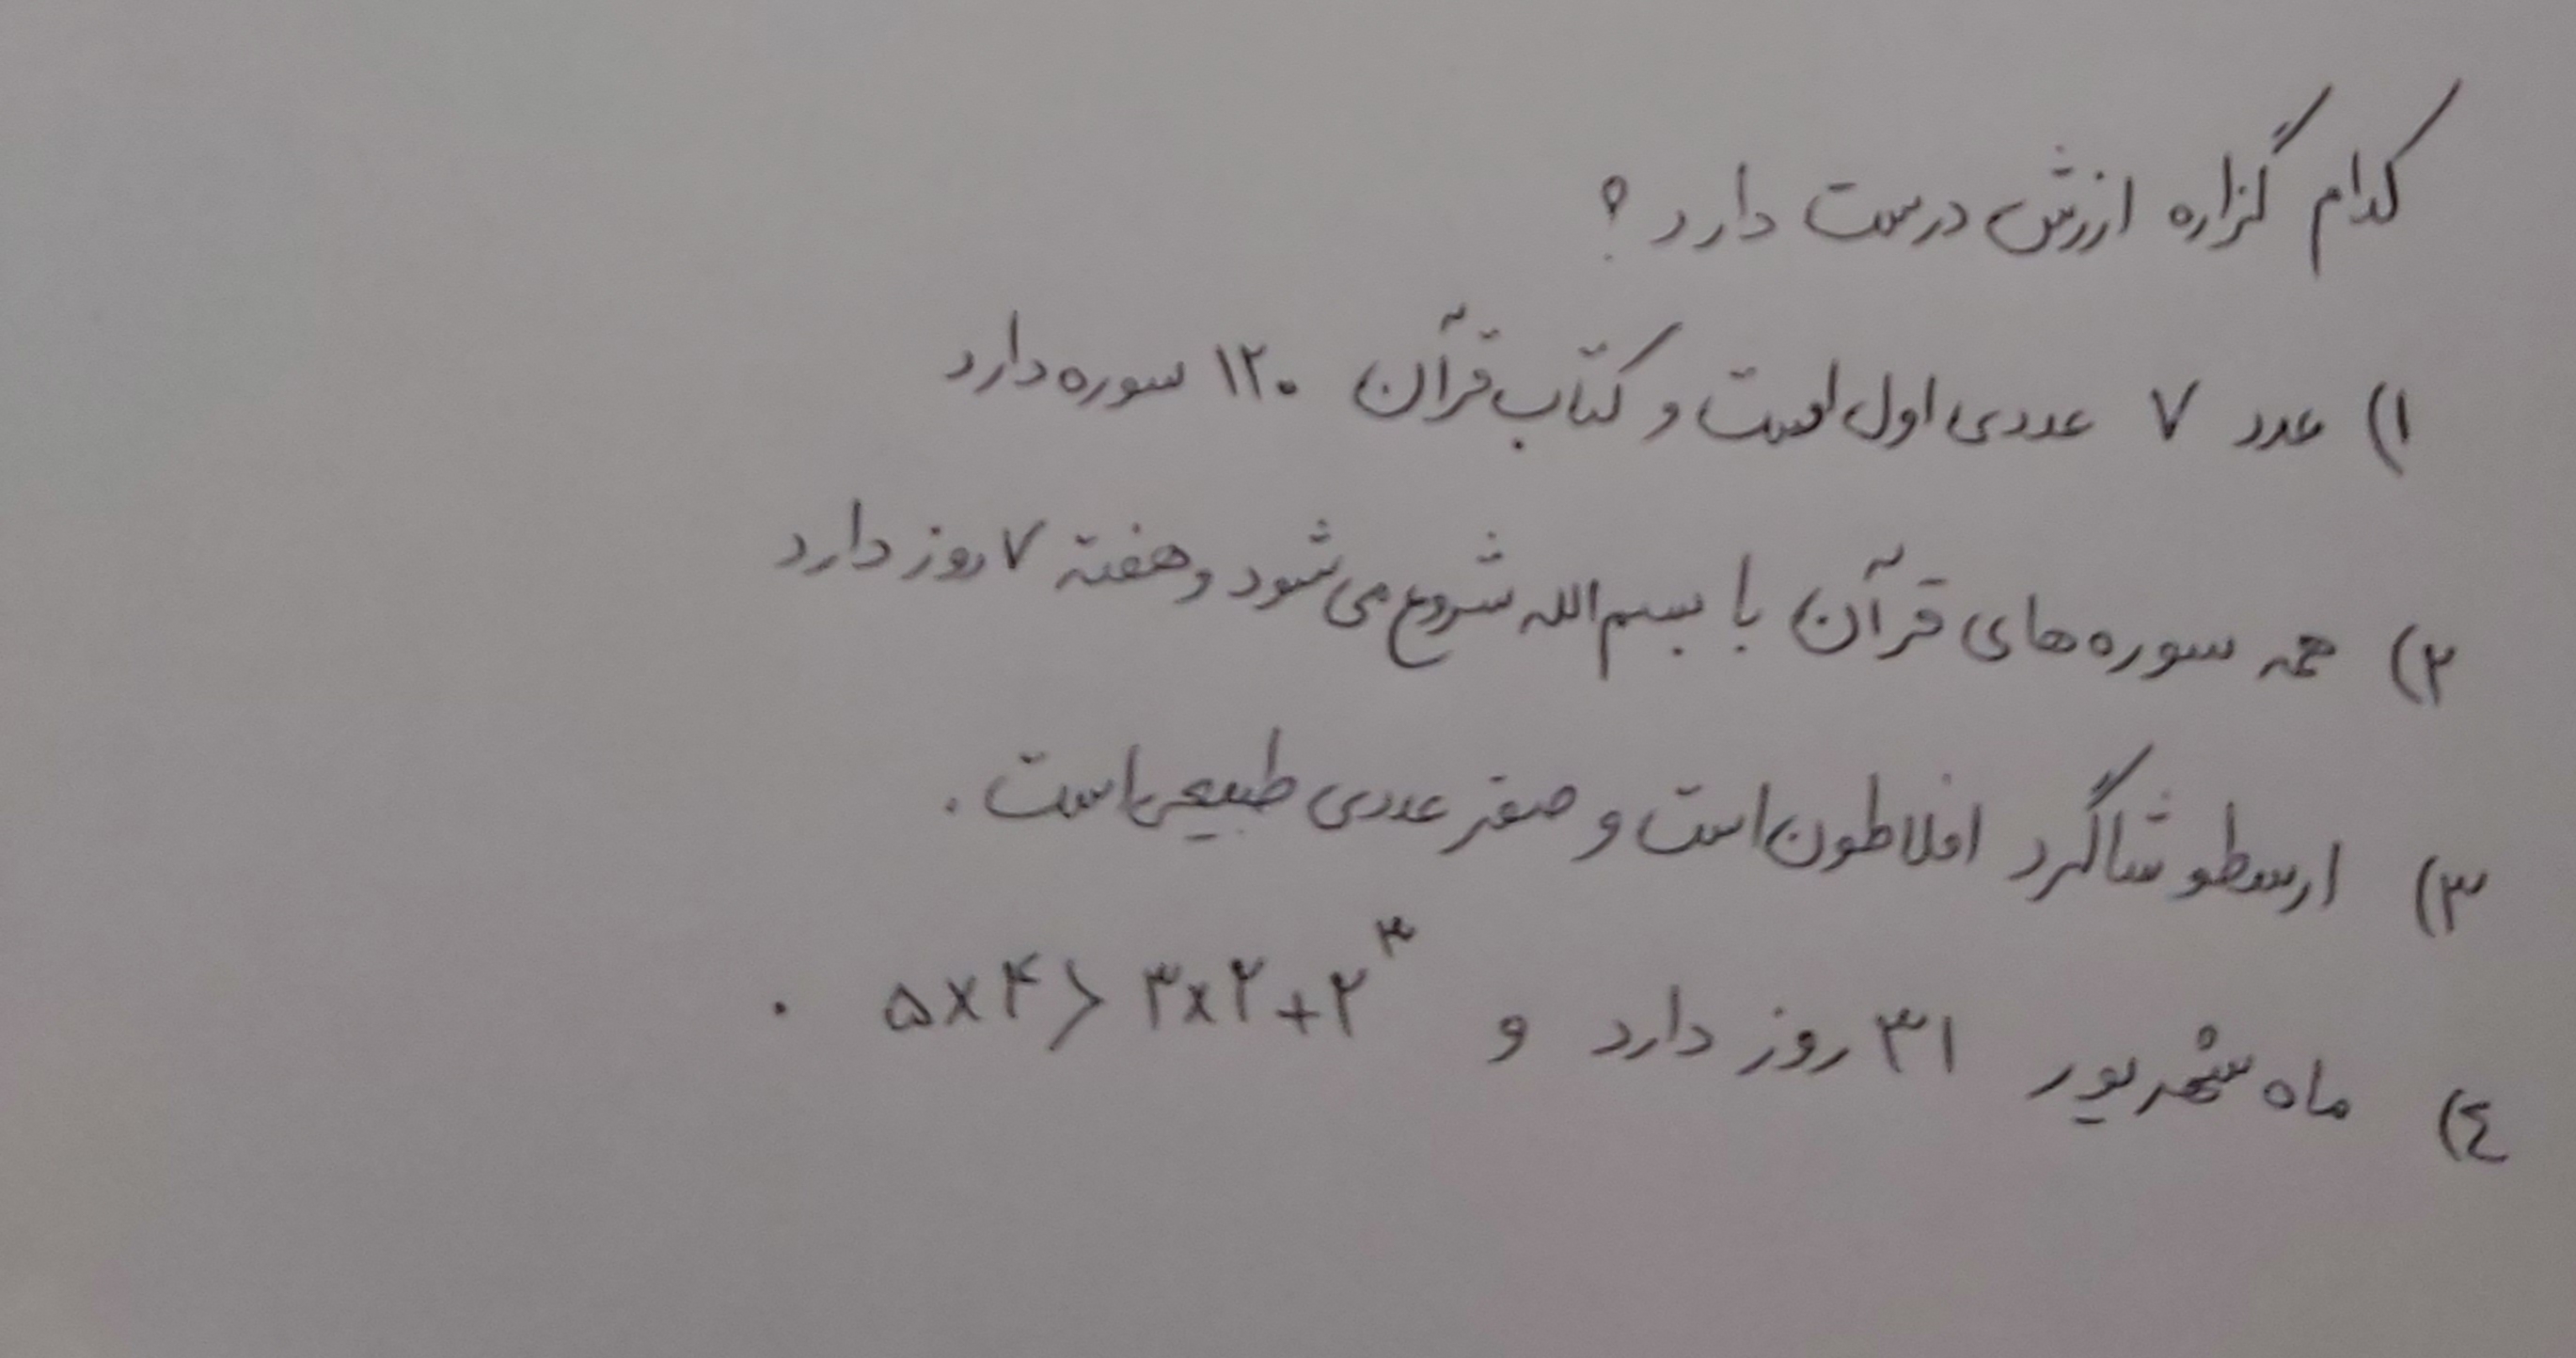 کدام گزاره ارزش درست دارد؟
۱) عدد ۷ عددی اول است و کتاب قرآن ۱۲۰ سوره دارد
۲) همه سوره‌های قرآن با بسم الله شروع می‌شود و هفته ۷ روز دارد
۳) ارسطو شاگرد افلاطون است و صفر عددی طبیعی است.
٤) ماه شهریور ۳۱ روز دارد و ۵×۴>۳×۲+۲^۳ .